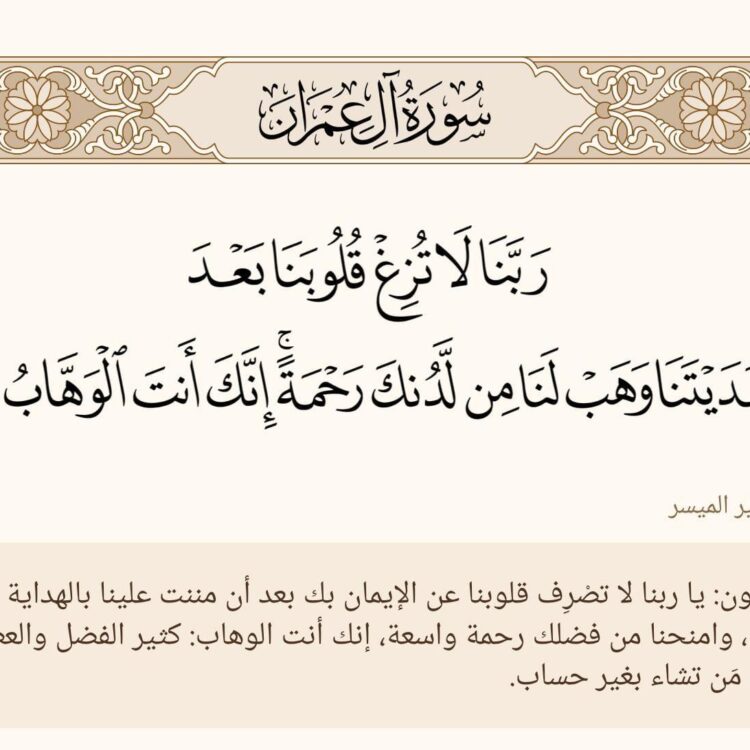 سُورَةُ آلِ عِمْرَان
رَبَّنَا لَا تُزِغْ قُلُوبَنَا بَعْدَ
وَهَبْ لَنَا مِن لَّدُنكَ رَحْمَةً ۚ إِنَّكَ أَنتَ ٱلْوَهَّابُ
الميسر
يا ربنا لا تصْرِف قلوبنا عن الإيمان بك بعد أن مننت علينا بالهداية
، وامنحنا من فضلك رحمة واسعة، إنك أنت الوهاب: كثير الفضل
مَن تشاء بغير حساب.